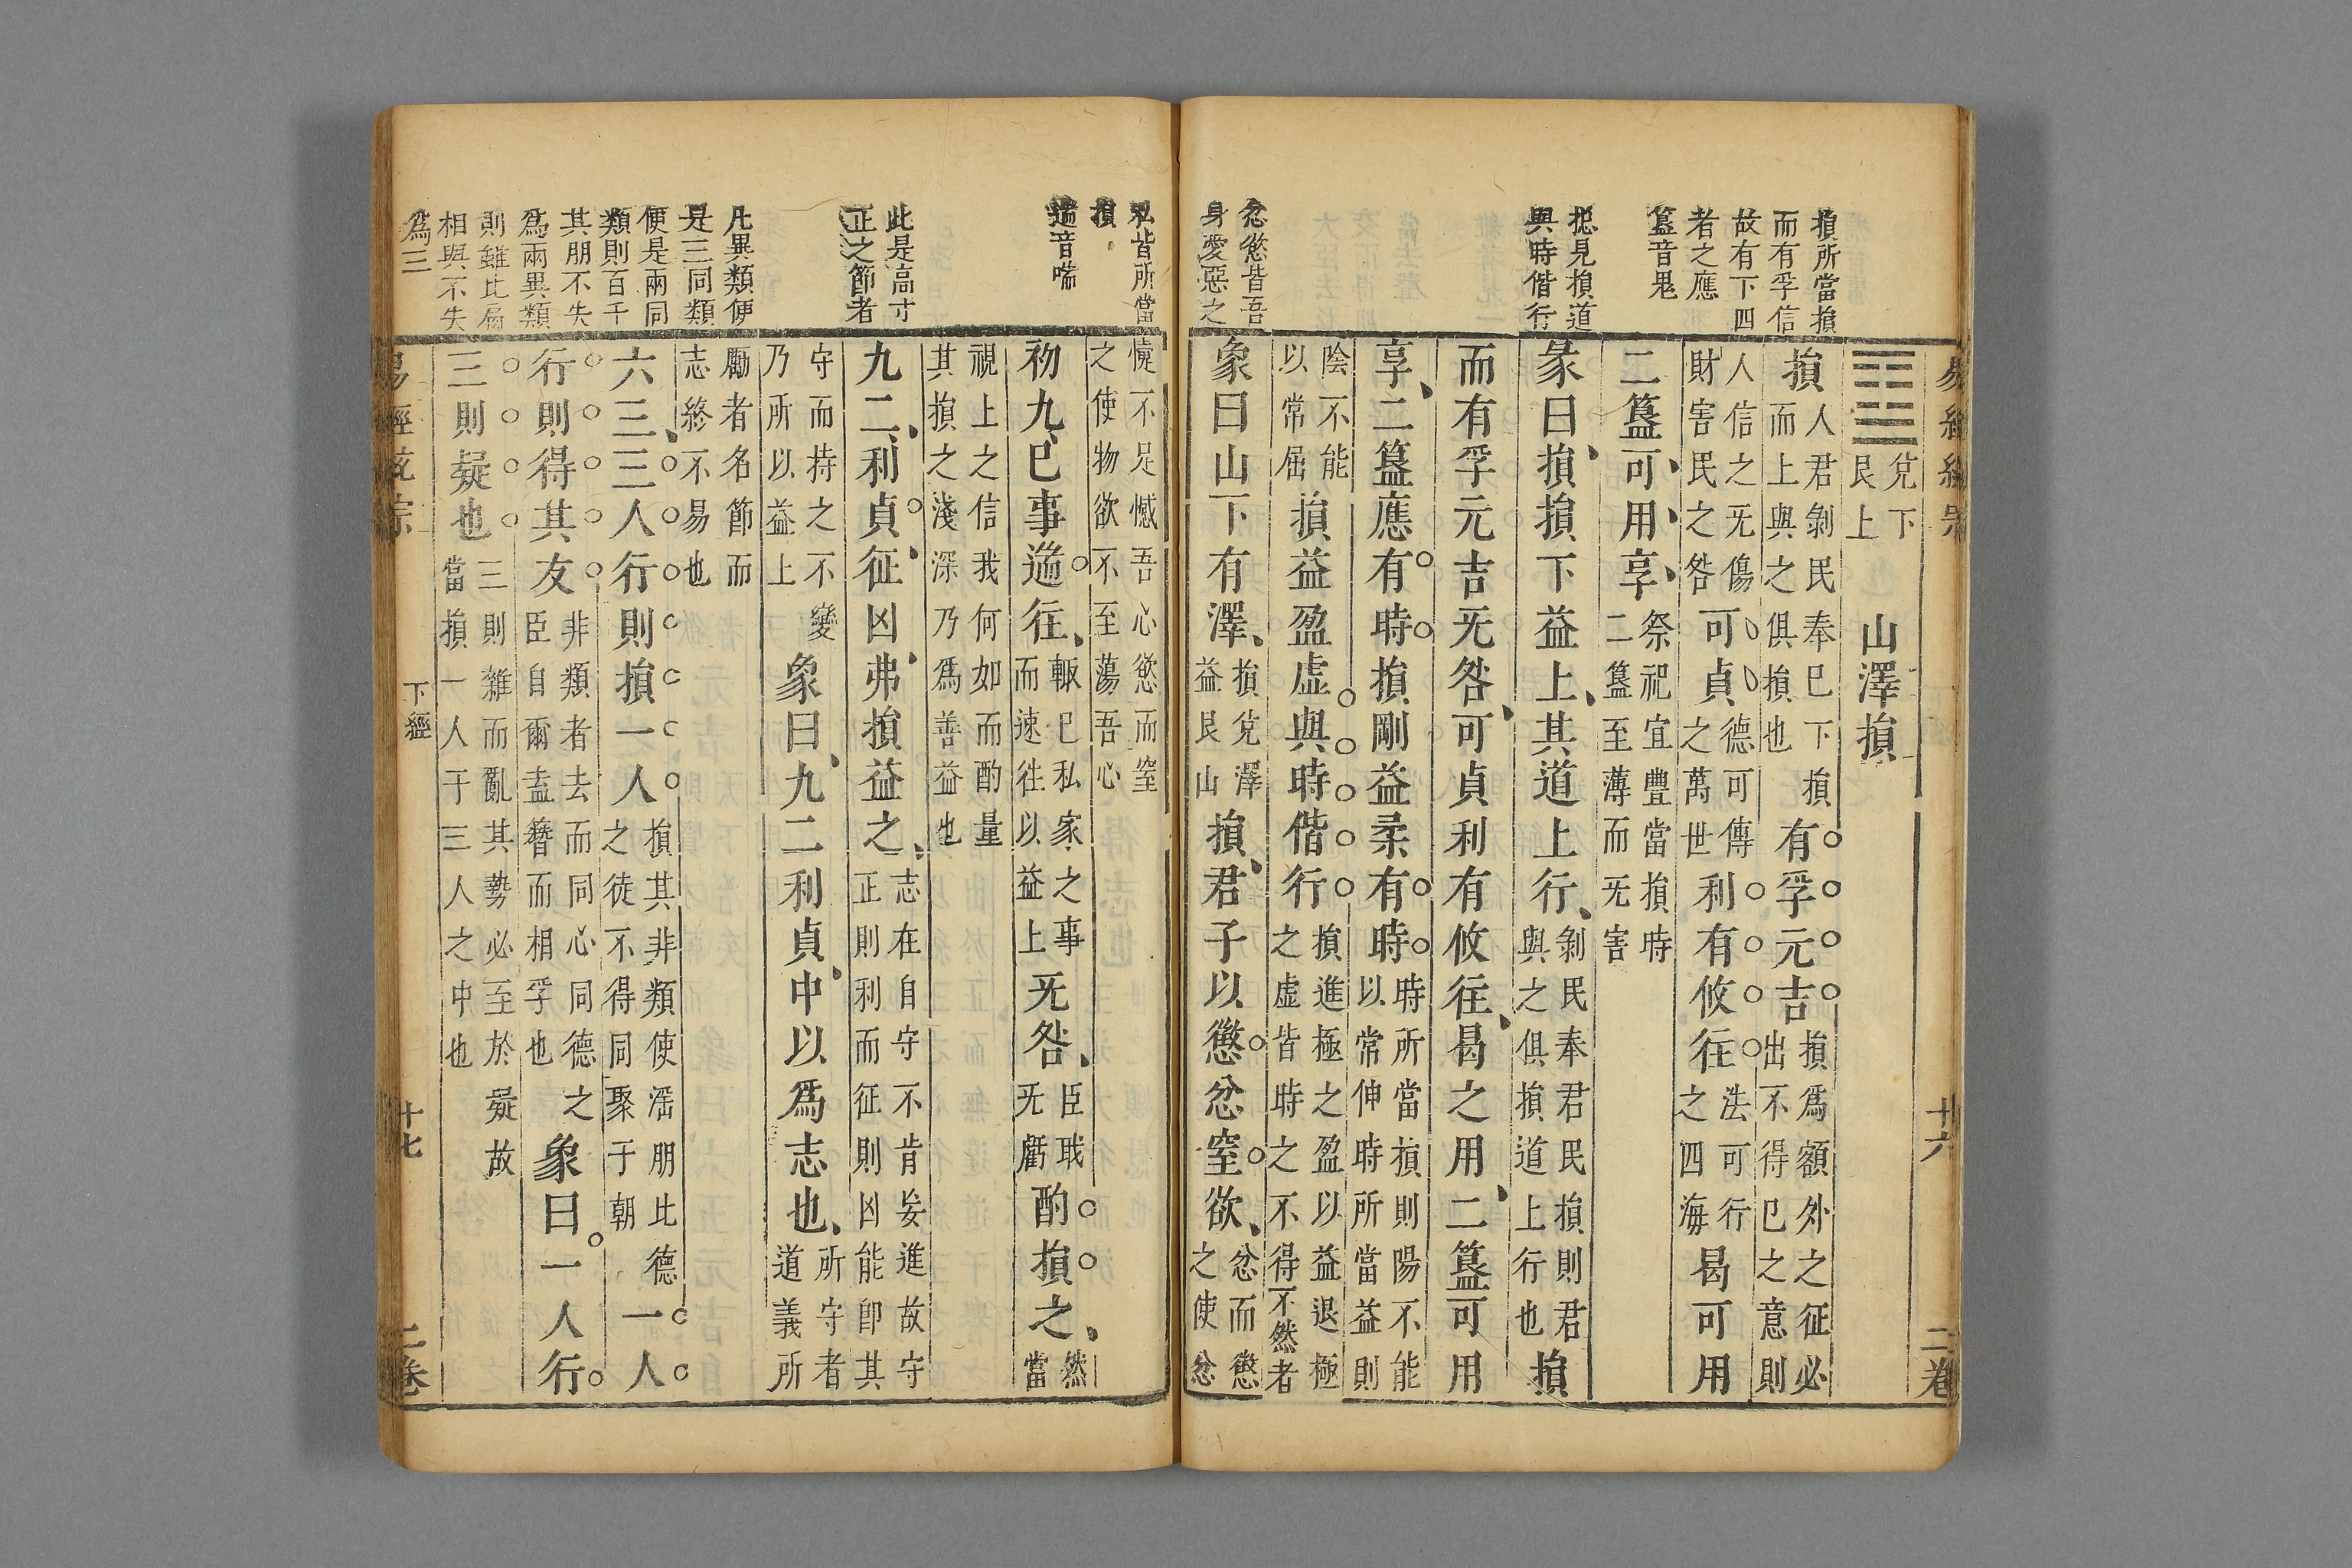 損所當損
而有孚信
故有下四
者之應
簋音晷
揔見損道
與時偕行
忿慾皆吾
身愛惡之
兌下
艮上
山澤損
損
人君剝民奉巳下損
而上與之俱損也
有孚元吉
損爲額外之征必
出不得巳之意則
人信之旡傷
財害民之咎
可貞
德可傳
之萬世
利有攸往
法可行
之四海
曷可用
二簋可用享
祭祀宜豐當損時
二簋至薄而旡害
彖曰損損下益上其道上行
剝民奉君民損則君
與之俱損道上行也
損
而有孚元吉旡咎可貞利有攸往曷之用二簋可用
享二簋應有時損剛益柔有時
時所當損則陽不能
以常伸時所當益則
陰不能
以常屈
損益盈虛與時偕行
損進極之盈以益退極
之虛皆時之不得不然者
象曰山下有澤
損兌澤
益艮山
損君子以懲忿窒欲
忿而懲
之使忿
十六
二卷
私皆所當
損
遄音喘
此是高寸
正之節者
凡異類便
是三同類
便是兩同
類則百千
其朋不失
爲兩異類
則雖比屬
相與不失
爲三
懥不足憾吾心慾而窒
之使物欲不至蕩吾心
初九巳事遄往
輟巳私家之事
而速往以益上
旡咎
臣職
旡虧
酌損之
然
當
視上之信我何如而酌量
其損之淺深乃爲善益也
九二利貞征凶弗損益之
志在自守不肯妄進故守
正則利而征則凶能卽其
守而持之不變
乃所以益上
象曰九二利貞中以爲志也
所守者
道義所
勵者名節而
志終不易也
六三三人行則損一人
損其非類使滛朋比德
之徒不得同聚于朝
一人
行則得其友
非類者去而同心同德之
臣自爾盍簪而相孚也
象曰一人行
三則疑也
三則雜而亂其勢必至於疑故
當損一人于三人之中也
下經
十七
二卷